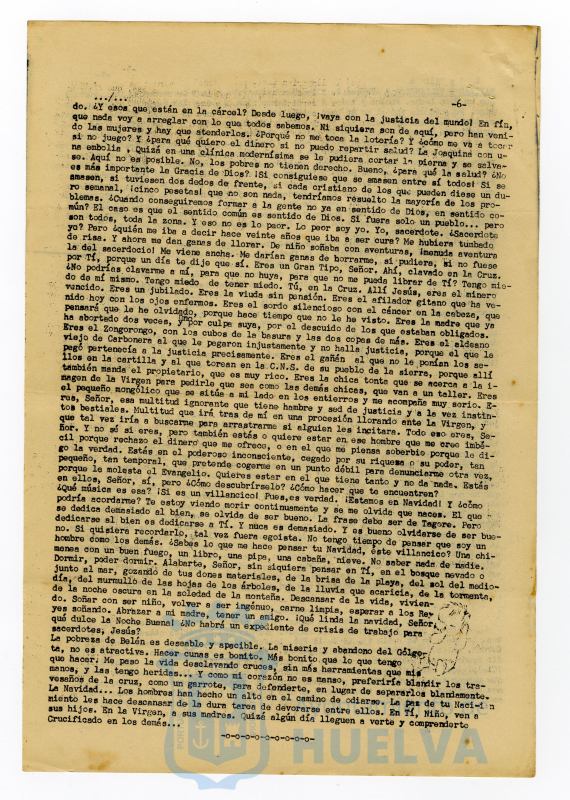 .../...
-6-
do. ¿Y esos que están en la cárcel? Desde luego, ¡vaya con la justicia del mundo! En fín,
que nada voy a arreglar con lo que todos sabemos. Ni siquiera son de aquí, pero han veni-
do las mujeres y hay que atenderlos. ¿Porqué no me toca la lotería? Y ¿cómo me va a tocar
si no juego? Y ¿para qué quiero el dinero si no puedo repartir salud? La Joaquina con u-
na embolia . Quizá en una clínica modernísima se le pudiera cortar la pierna y se salva-
se. Aquí no es posible. No, los pobres no tienen derecho. Bueno, ¿para qué la salud? ¿No
es más importante la Gracia de Dios? ¡Si consiguiese que se amasen entre sí todos! Si se
amasen, si tuviesen dos dedos de frente, si cada cristiano de los que pueden diese un du-
ro semanal, ¡cinco pesetas! que no son nada, tendríamos resuelto la mayoría de los pro-
blemas. ¿Cuando conseguiremos formar a la gente no ya en sentido de Dios, en sentido co-
mún? El caso es que el sentido común es sentido de Dios. Si fuera solo un pueblo... pero
son todos, toda la zona. Y eso no es lo peor. Lo peor soy yo. Yo, sacerdote. ¿Sacerdote
yo? Pero ¿quién me iba a decir hace veinte años que iba a ser cura? Me hubiera tumbado
de risa. Y ahora me dan ganas de llorar. De niño soñaba con aventuras, ¡menuda aventura
la del sacerdocio! Me viene ancha. Me darían ganas de borrarme, si pudiera, si no fuese
por Tí, porque un día te dije que sí. Eres un Gran Tipo, Señor. Ahí, clavado en la Cruz.
¿No podrías clavarme a mí, para que no huya, para que no me pueda librar de Tí? Tengo mie-
do de mí mismo. Tengo miedo de tener miedo. Tú, en la Cruz. Allí Jesús, eres el minero
vencido. Eres un jubilado. Eres la viuda sin pensión. Eres el afilador gitano que ha ve-
nido hoy con los ojos enfermos. Eres el sordo silencioso con el cáncer en la cabeza, que
pensará que le he olvidado, porque hace tiempo que no le he visto. Eres la madre que ya
ha abortado dos veces, y uno por culpa suya, por el descuido de los que estaban obligados.
Eres el Zongorongo, con los cubos de la basura y las dos copas de más. Eres el aldeano
viejo de Carbonera al que le pegaron injustamente y no halla justicia, porque el que le
pegó pertenecía a la justicia precisamente. Eres el gañán al que no le ponían los se-
llos en la cartilla y al que torean en la C.N.S. de su pueblo de la sierra, porque allí
también manda el propietario, que es muy rico. Eres la chica tonta que se acerca a la i-
magen de la Virgen para pedirle que sea como las demás chicas, que van a un taller. Eres
el pequeño mongólico que se sitúa a mi lado en los entierros y me acompaña muy serio. E-
res, Señor, esa multitud ignorante que tiene hambre y sed de justicia y a la vez instin-
tos bestiales. Multitud que irá tras de mí en una procesión llorando ante la Virgen, y
que tal vez iría a buscarme para arrastrarme si alguien les incitara. Todo eso eres, Se-
ñor. Y no sé si eres, pero también estás o quiere estar en ese hombre que me cree imbé-
cil porque rechazo el dinero que me ofrece, o en el que me piensa soberbio porque le di-
go la verdad. Estás en el poderoso inconsciente, cegado por su riqueza o su poder, tan
pequeño, tan temporal, que pretende cogerme en un punto débil para denunciarme otra vez,
porque le molesta el Evangelio. Quieres estar en el que tiene tanto y no da nada. Estás
en ellos, Señor, sí, pero ¿Cómo descubrírselo? ¿Cómo hacer que te encuentren?
¿Qué música es esa? ¡Si es un villancico! Pues,es verdad. ¡Estamos en Navidad! Y ¿cómo
podría acordarme? Te estoy viendo morir continuamente y se me olvida que naces. El que
se dedica demasiado al bien, se olvida de ser bueno. La frase debe ser de Tagore. Pero
dedicarse al bien es dedicarse a Tí. Y nunca es demasiado. Y es bueno olvidarse de ser bue-
no. Si quisiera recordarlo, tal vez fuera egoista. No tengo tiempo de pensar que soy un
hombre como los demás. ¿Sabes lo que me hace pensar tu Navidad, este villancico? Una chi-
menea con un buen fuego, un libro, una pipa, una cabaña, nieve. No saber nada de nadie.
Dormir, poder dormir. Alabarte, Señor, sin siquiera pensar en Tí, en el bosque nevado o
junto al mar, gozando de tus dones materiales, de la brisa de la playa, del sol del medio-
día, del murmullo de las hojas de los árboles, de la lluvia que acaricia, de la tormenta,
de la noche oscura en la soledad de la montaña. Descansar de la vida, vivien-
do. Soñar con ser niño, volver a ser ingénuo, carne limpia, esperar a los Re-
yes soñando. Abrazar a mi madre, tener un amigo. ¡Qué linda la navidad, Señor,
qué dulce la Noche Buena! ¿No habrá un expediente de crisis de trabajo para
sacerdotes, Jesús?
La pobreza de Belén es deseable y apacible. La miseria y abandono del Gólgo-
ta, no es atractiva. Hacer cunas es bonito. Más bonito que lo que tengo
que hacer. Me paso la vida desclavando cruces, sin más herramientas que mis
manos, y las tengo heridas... Y como mi corazón no es manso, preferiría blandir los tra-
vesaños de la cruz, como un garrote, para defenderte, en lugar de separarlos blandamente.
La Navidad... Los hombres han hecho un alto en el camino de odiarse. La paz de tu Naci-
miento les hace descansar de la dura tarea de devorarse entre ellos. En Tí, Niño, ven a
sus hijos. En la Virgen, a sus madres. Quizá algún día lleguen a verte y comprenderte
Crucificado en los demás...
-o-o-o-o-o-o-o-o-o-
HUELVA